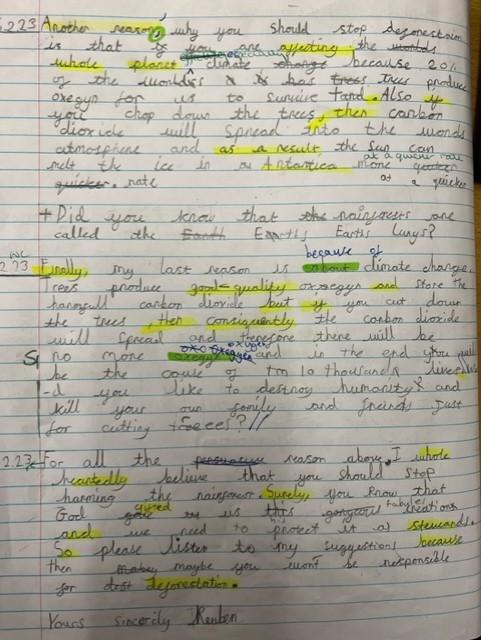 .2.23 Another reason, why you should stop deforestation
is that you are affecting the
whole planet climate because 20%
of the worlds has trees produce
oxegyn for us to survive and. Also if
you chop down the trees, then carbon
dioxide will spread into the worlds
atmosphere and as a result, the sun can
at a quicker rate
melt the ice in Antartica more quicker
quicker. rate at a quicker
+ Did you know that the rainforests are
called the Earth Earths Earths Lungs?
because of
2.23 Finally, my last reason is about climate change.
Trees produce good-quality oxegyn and store the
harmfull carbon dioxide but if you cut down
the trees, then consiquently the carbon dioxide
will spread and therefore there will be
oxygen
no more oxegyn and in the end you will
be the cause of 10 thousands lives
d you like to destroy humanity and
kill your own family and freinds just
for cutting trees?!!
2.23 For all the persuasive reason above, I whole
heartedly believe that you should stop
harming the rainforest. Surely, you know that
God gifted us this gorgeous creations
and we need to protect it as stewards.
So please listen to my suggestions because
then maybe you wont be responsible
for deforestation.
Yours sincerily Reuben